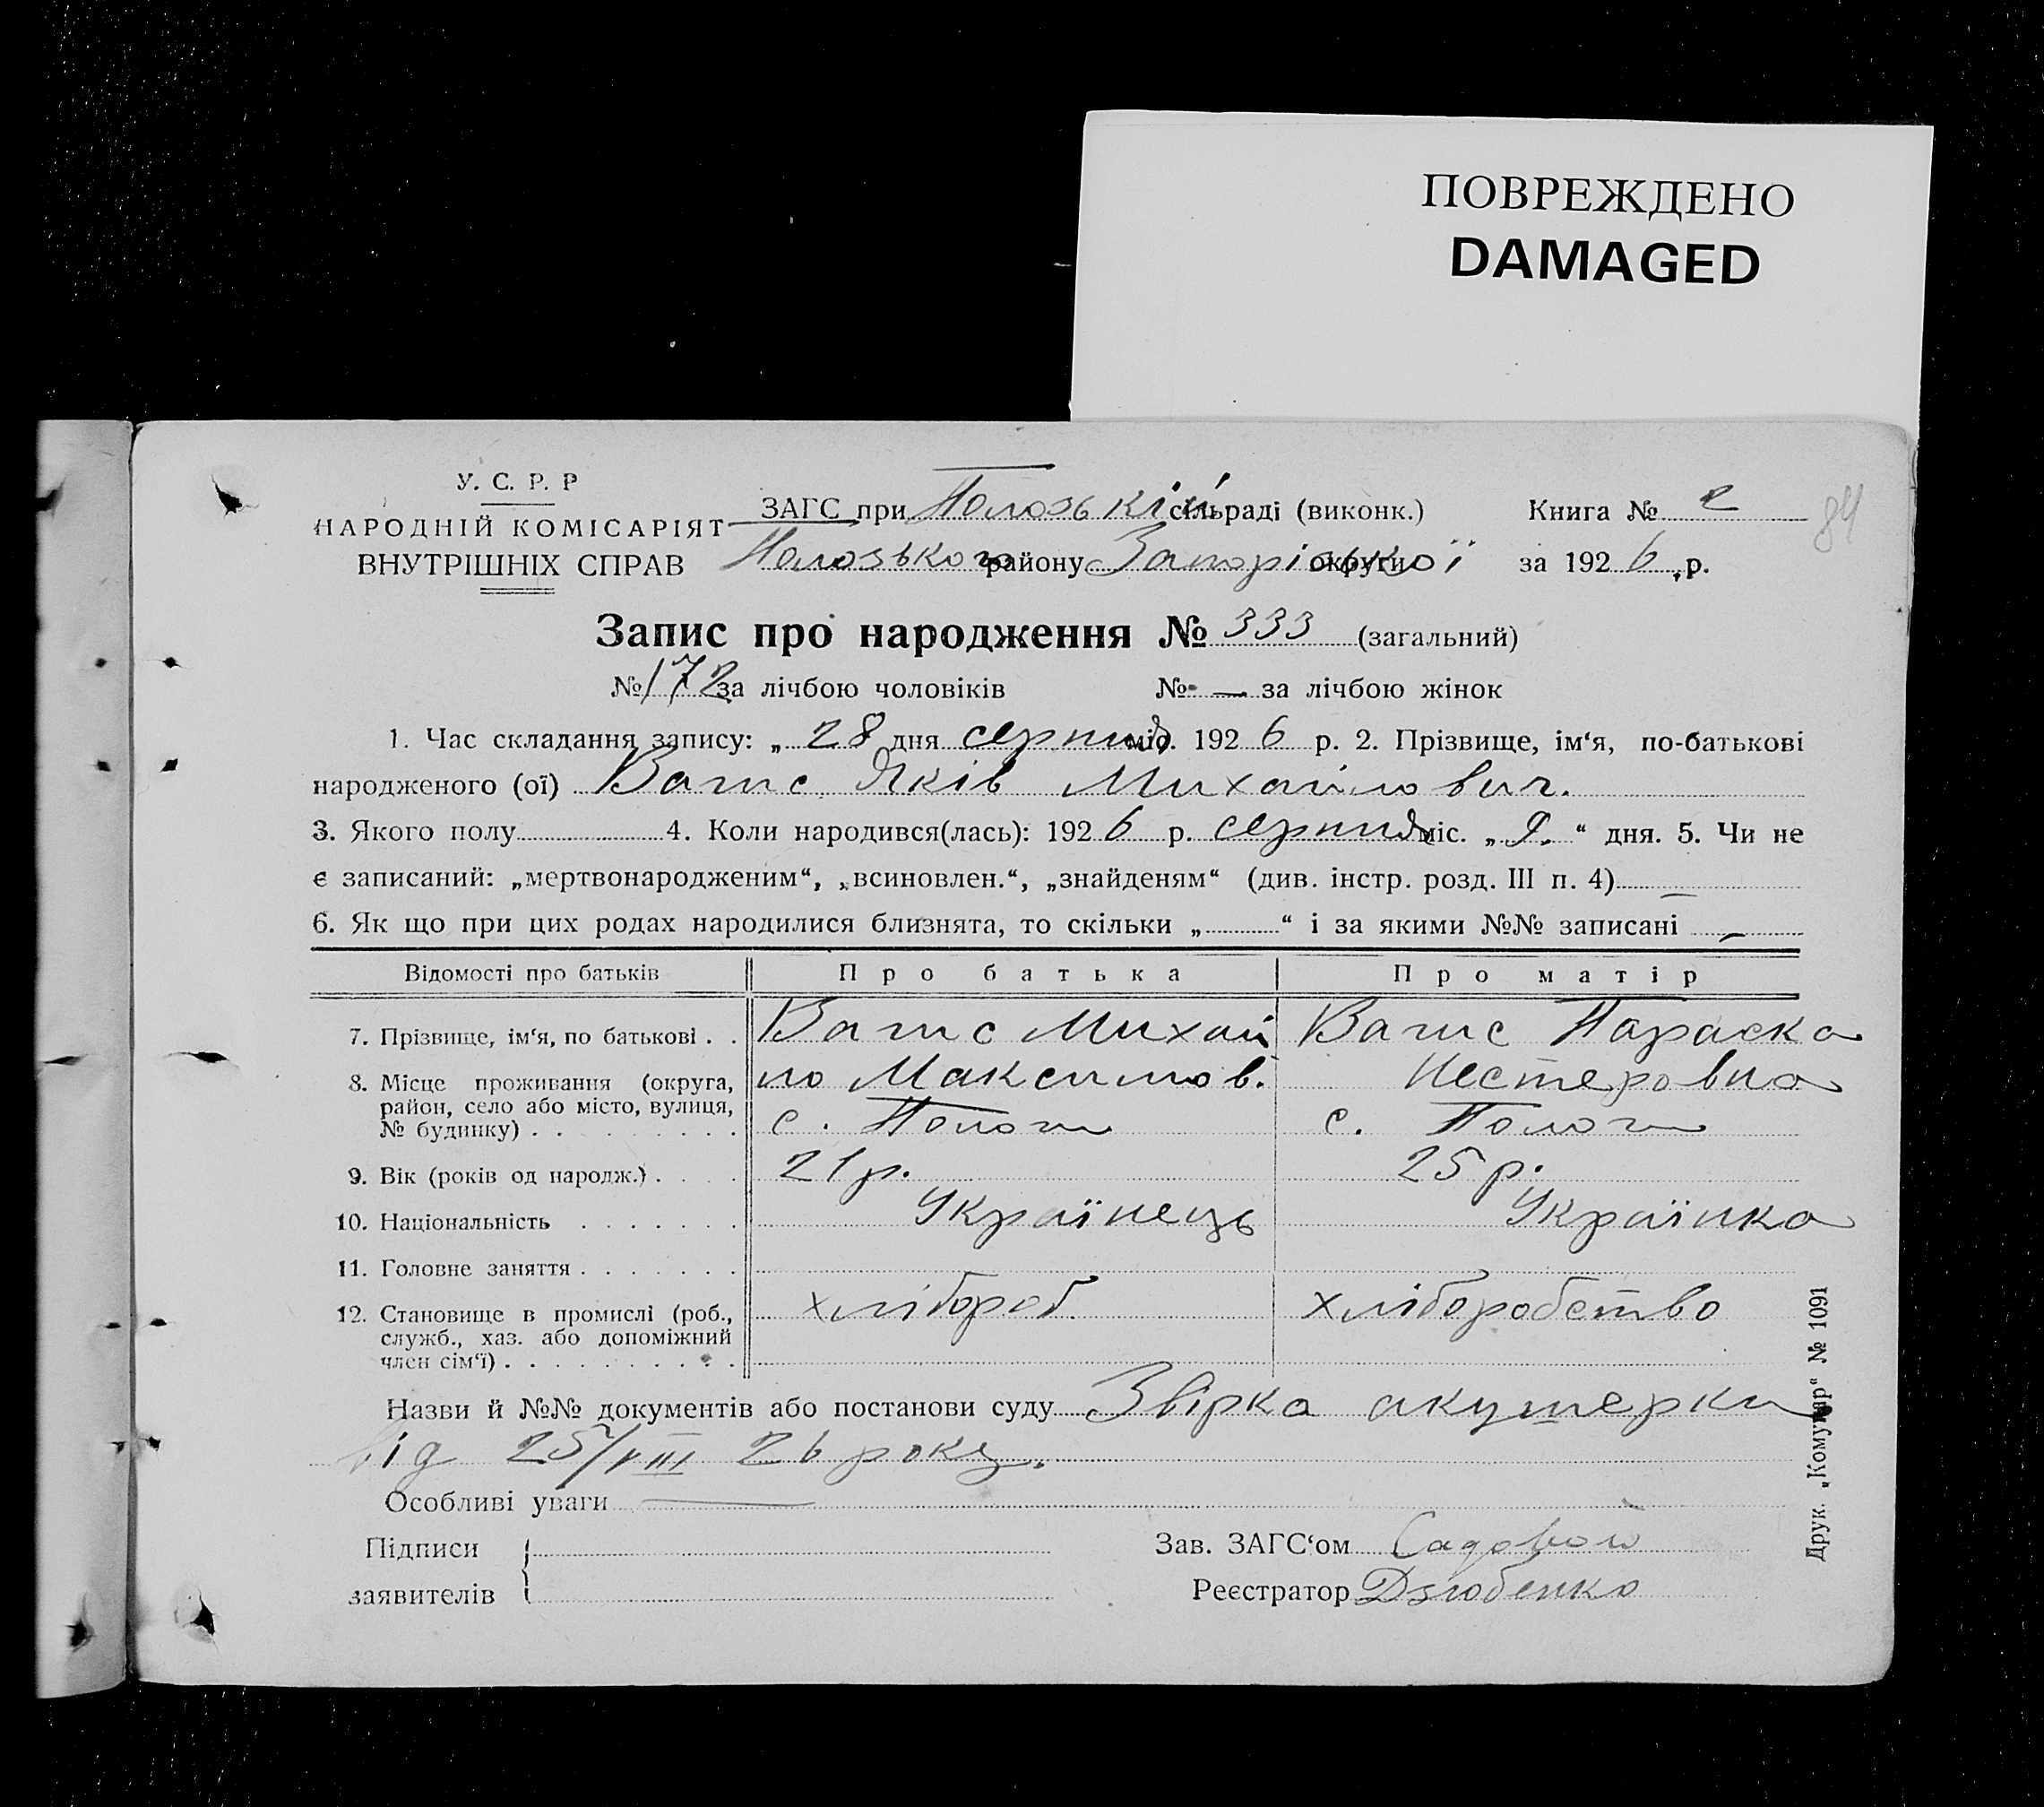 ПОВРЕЖДЕНО
DAMAGED
У. С. Р. Р
НАРОДНІЙ КОМІСАРІЯТ
ВНУТРІШНІХ СПРАВ
ЗАГС при Полозькій сільраді (виконк.)
Полозького району Запорізької округи
Книга № 2
за 1926 р.
84
Запис про народження № 333 (загальний)
№ 172 за лічбою чоловіків № — за лічбою жінок
1. Час складання запису: „ 28 дня серпня міс. 1926 р. 2. Прізвище, ім‘я, по-батькові
народженого (ої) Яків Михайлович.
3. Якого полу 4. Коли народився(лась): 1926 р. серпня міс. „ “ дня. 5. Чи не
є записаний: „мертвонародженим“, „всиновлен.“, „знайденям“ (див. інстр. розд. III п. 4) —
6. Як що при цих родах народилися близнята, то скільки „ “ і за якими №№ записані —
Відомості про батьків Про батька Про матір
7. Прізвище, ім‘я, по батькові . . Михай Параска
ло Максимов. Нестеровна
8. Місце проживання (округа,
район, село або місто, вулиця,
№ будинку) . . с. Пологи с. Пологи
9. Вік (років од народж.) . . . . 21 р. 25 р.
10. Національність . . . . . . . Українець Українка
11. Головне заняття . . . . . . .
хлібороб. хліборобство
12. Становище в промислі (роб.,
служб., хаз. або допоміжний
член сім‘ї) . . . . . . . . . .
Назви й №№ документів або постанови суду Звірка акушерки
від 25/VIII 26 року.
Особливі уваги —
Підписи
заявителів
Зав. ЗАГС‘ом Садовой
Реєстратор Дзюбенко
Друк. „Комунар“ № 1091